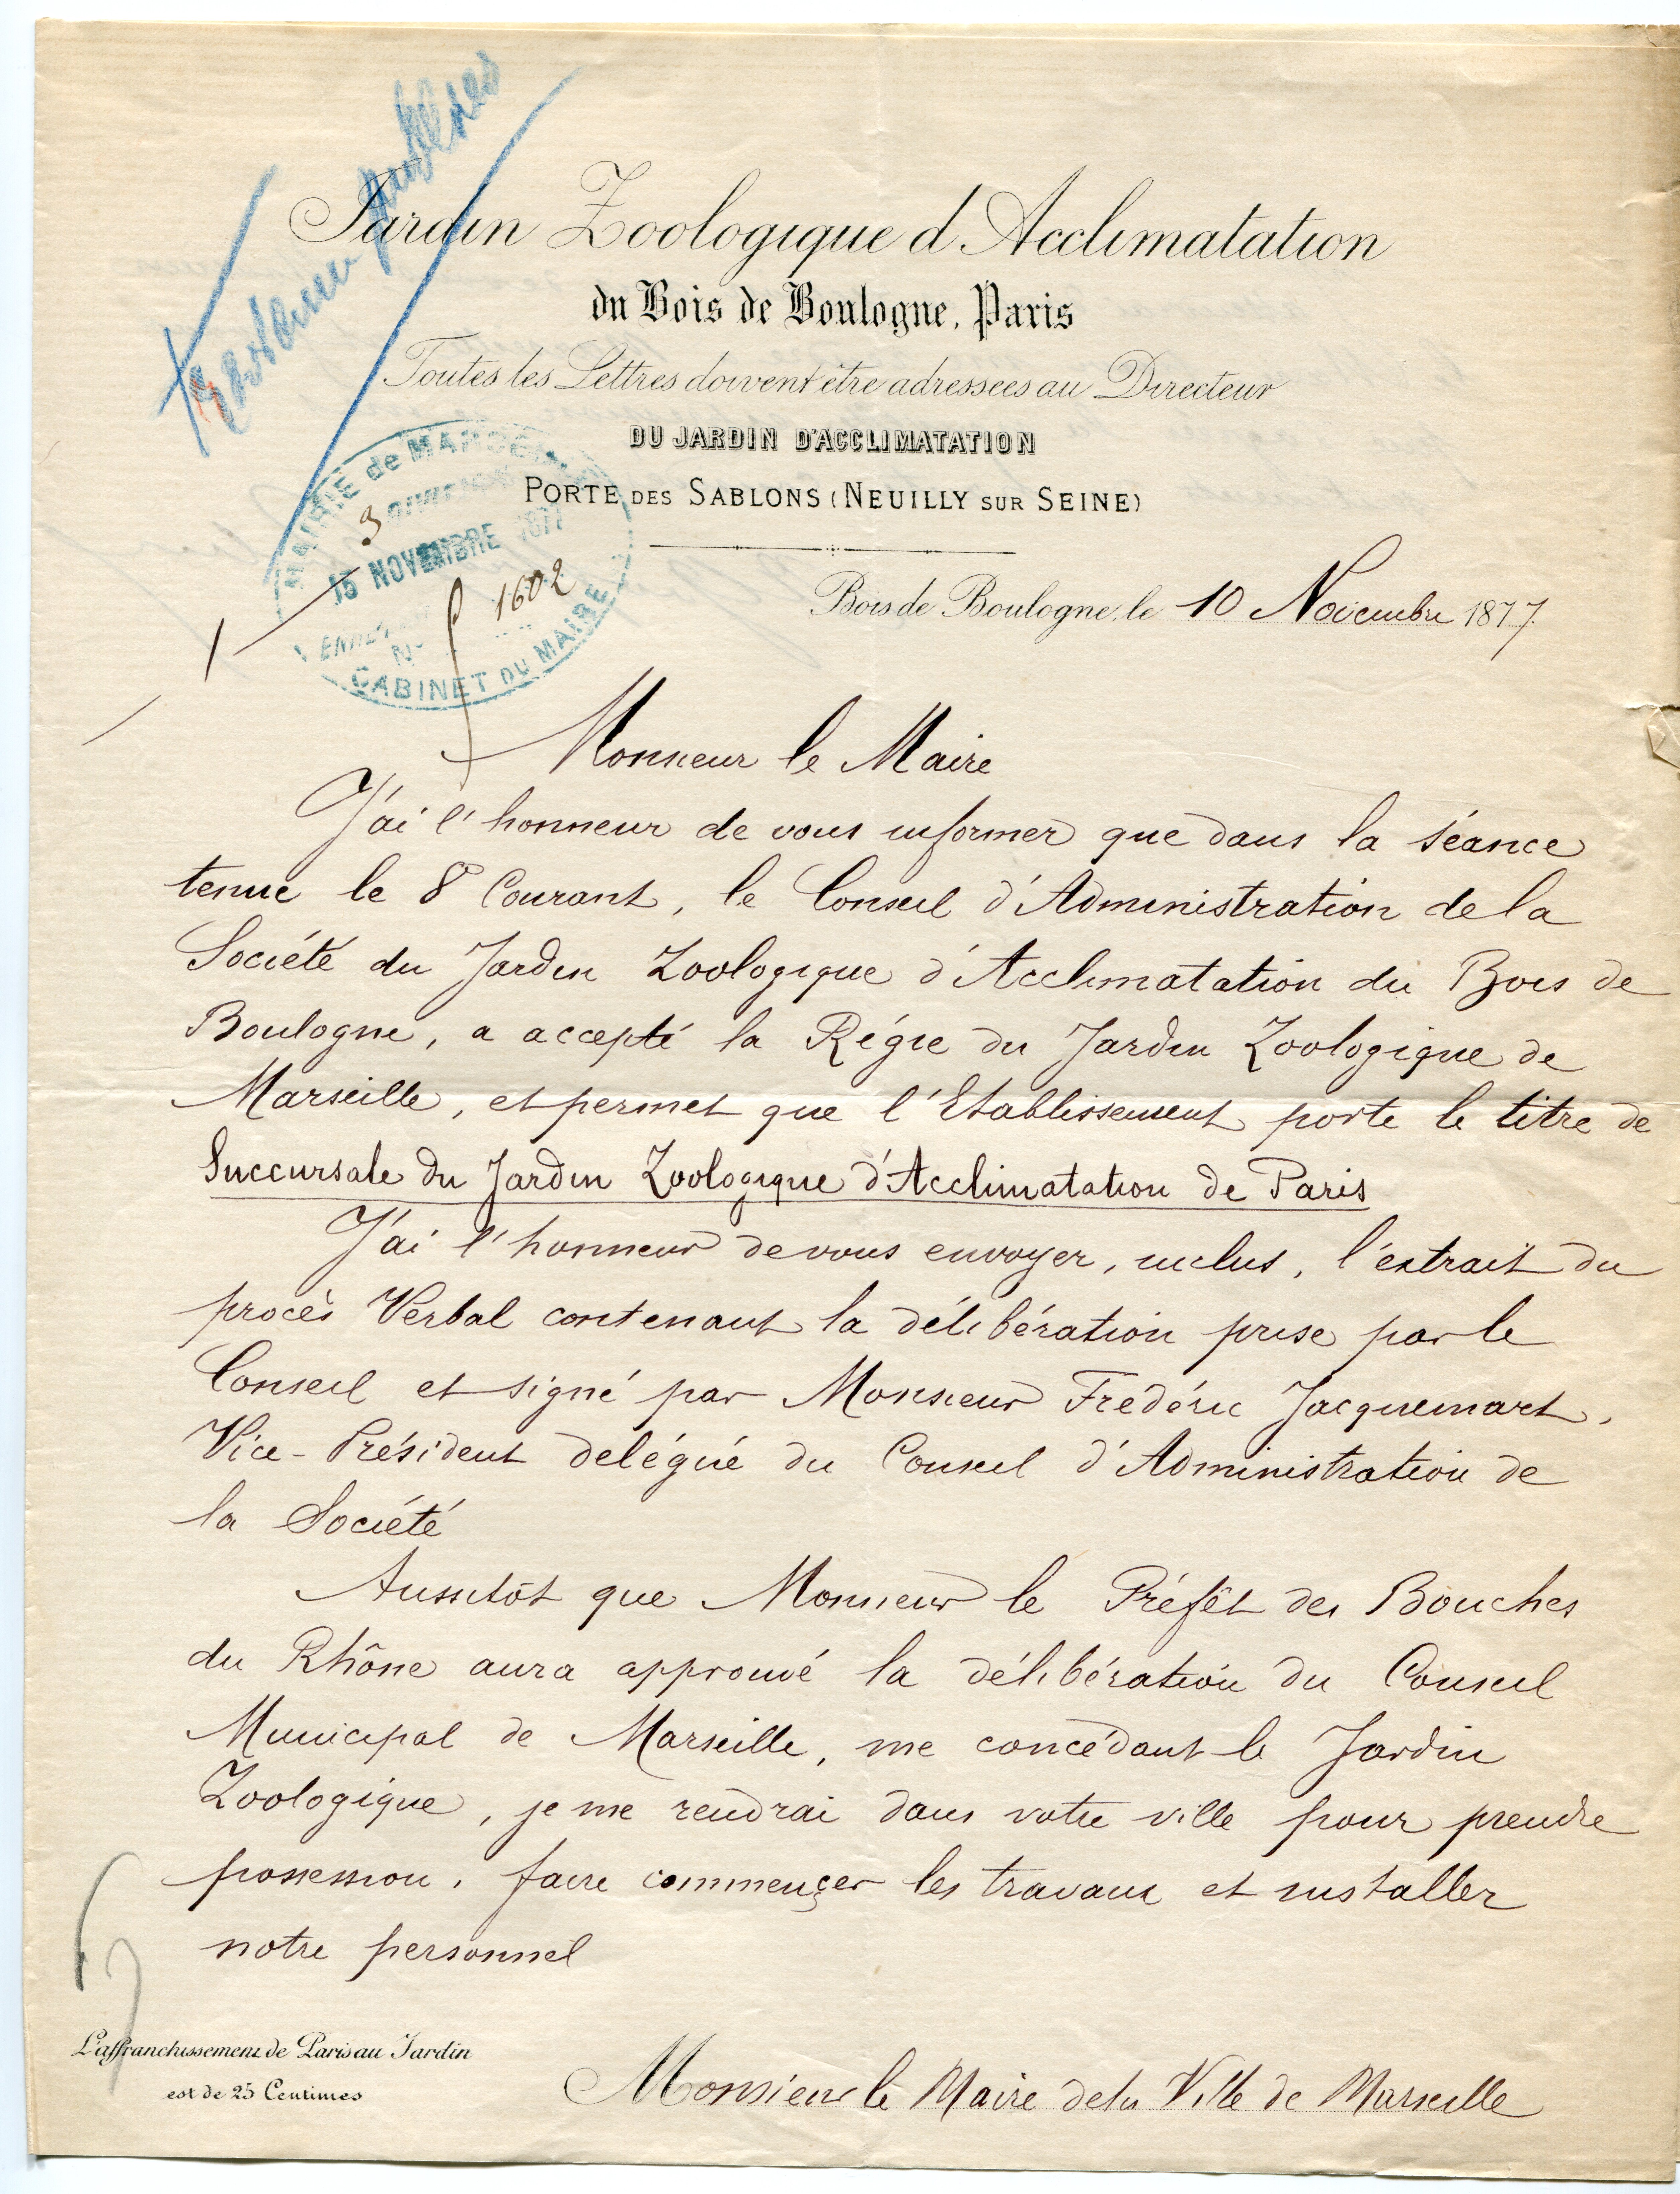 Jardin Zoologique d'Acclimatation
du Bois de Boulogne, Paris
Toutes les Lettres doivent être adressées au Directeur
DU JARDIN D'ACCLIMATATION
PORTE DES SABLONS (NEUILLY SUR SEINE)
MAIRIE de MARSEILLE
3 DIVISION
15 NOVEMBRE 1877
1602
N°
CABINET DU MAIRE
Bois de Boulogne, le 10 Novembre 1877.
Monsieur le Maire
J'ai l'honneur de vous informer que dans la séance
tenue le 8 Courant, le Conseil d'Administration de la
Société du Jardin Zoologique d'Acclimatation du Bois de
Boulogne, a accepté la Régie du Jardin Zoologique de
Marseille, et permet que l'Etablissement porte le titre de
Succursale du Jardin Zoologique d'Acclimatation de Paris
J'ai l'honneur de vous envoyer, inclus, l'extrait du
procès Verbal contenant la délibération prise par le
Conseil et signé par Monsieur Frédéric Jacquemart,
Vice-Président delégué du Conseil d'Administration de
la Société
Aussitôt que Monsieur le Préfêt des Bouches
du Rhône aura approuvé la délibération du Conseil
Municipal de Marseille, me concédant le Jardin
Zoologique, je me rendrai dans votre ville pour prendre
possession, faire commençer les travaux et installer
notre personnel
L'affranchissement de Paris au Jardin
est de 25 Centimes
Monsieur le Maire de la Ville de Marseille